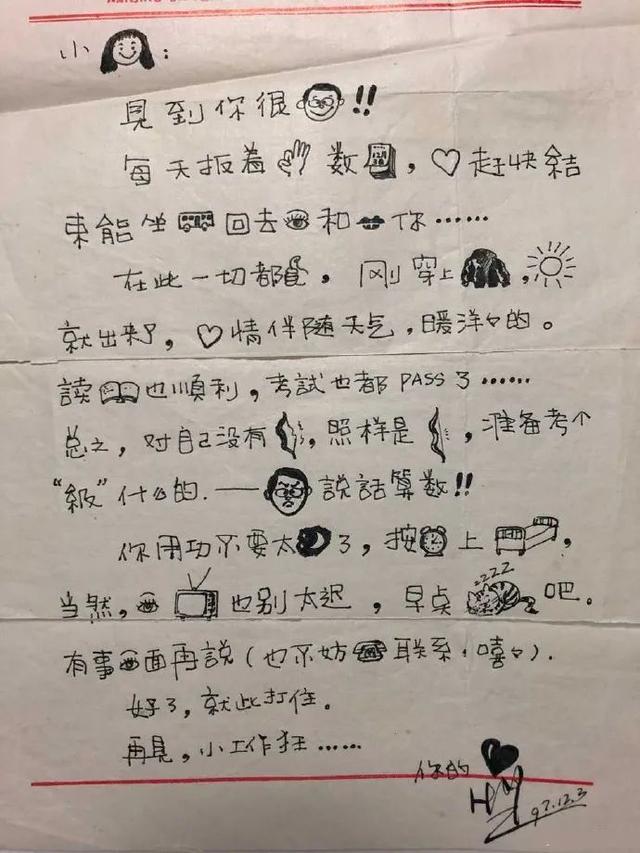 小：
見到你很!!
每天扳着数，♡赶快結
束能坐回去和你……
在此一切都，刚穿上，
就出来了，♡情伴随天气，暖洋々的。
讀也順利，考試也都PASS了……
总之，对自己没有，照样是，准备考个
“級”什么的.——説話算数!!
你用功不要太了，按上，
当然，也别太迟，早点zzz吧。
有事面再説（也不妨联系，嘻々）.
好了，就此打住。
再見，小工作狂……
你的
97.12.3